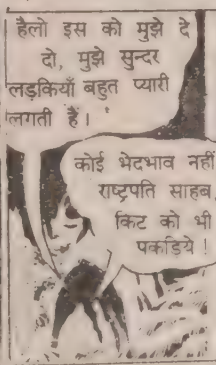 हैलो इस को मुझे दे
दो, मुझे सुन्दर
लड़कियाँ बहुत प्यारी
लगती हैं।
कोई भेदभाव नहीं
राष्ट्रपति साहब,
किट को भी
पकड़िये !